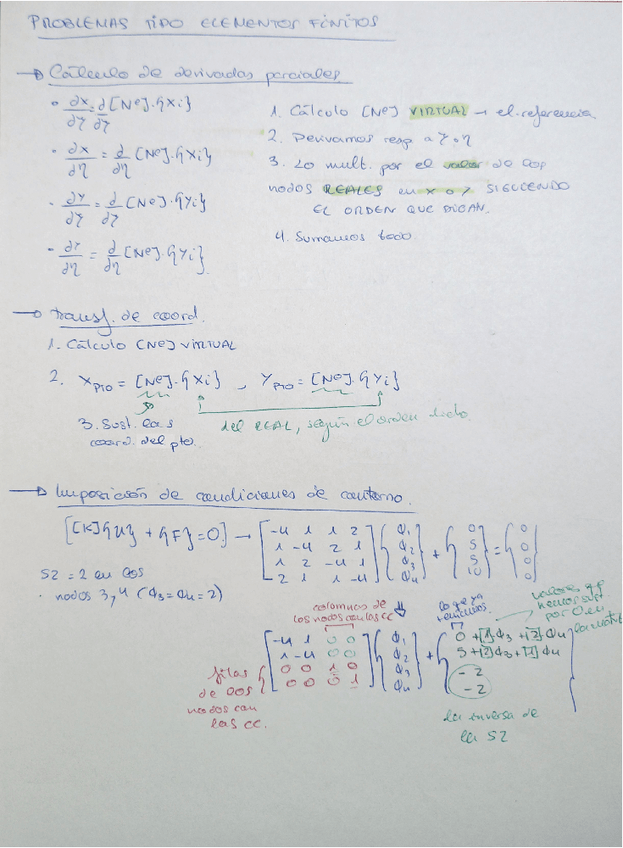 PROBLEMAS TIPO ELEMENTOS FINITOS
→ Cálculo de derivadas parciales
• ∂x/∂ξ = ∂/∂ξ [Ne]·{Xi}
• ∂x/∂η = ∂/∂η [Ne]·{Xi}
• ∂y/∂ξ = ∂/∂ξ [Ne]·{Yi}
• ∂y/∂η = ∂/∂η [Ne]·{Yi}
1. Cálculo [Ne] VIRTUAL → el. referencia
2. Derivamos resp a ξ o η
3. Lo mult. por el valor de los
nodos REALES en x o y SIGUIENDO
EL ORDEN QUE DIGAN.
4. Sumamos todo
→ Transf. de coord.
1. Cálculo [Ne] VIRTUAL
2. X PTO = [Ne]·{Xi} , Y PTO = [Ne]·{Yi}
3. Sust. las
coord. del pto.
del REAL, según el orden dado
→ Imposición de condiciones de contorno.
[[K]{u} + {F} = 0] → [-4 1 1 2] {Φ1} + {0} = {0}
[1 -4 2 1] {Φ2} {5} {0}
[1 2 -4 1] {Φ3} {5} {0}
[2 1 1 -4] {Φ4} {10} {0}
SZ = 2 en los
nodos 3, 4 (Φ3 = Φ4 = 2)
columnas de
los nodos con las cc
lo que ya
teníamos
valores q
hemos sust
por 0 en
la matriz
[-4 1 0 0] {Φ1} + {0 + [1]Φ3 + [2]Φ4}
[1 -4 0 0] {Φ2} {5 + [2]Φ3 + [1]Φ4}
[0 0 1 0] {Φ3} {-2}
[0 0 0 1] {Φ4} {-2}
filas
de los
nodos con
las cc.
la inversa de
la SZ